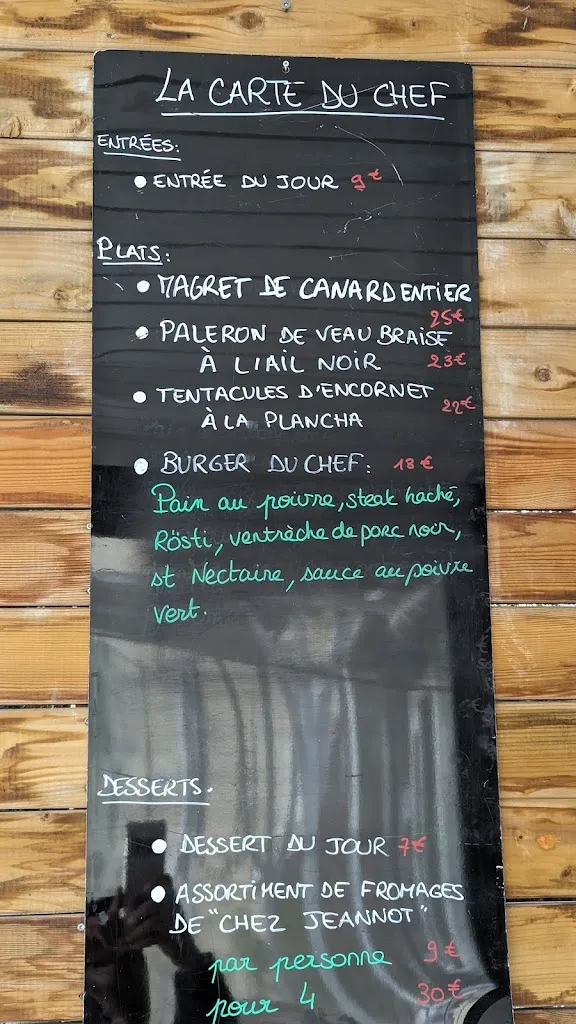 LA CARTE DU CHEF
ENTRÉES:
• ENTRÉE DU JOUR 9€
PLATS:
• MAGRET DE CANARD ENTIER
25€
• PALERON DE VEAU BRAISE
À L'AIL NOIR 23€
• TENTACULES D'ENCORNET
22€
À LA PLANCHA
• BURGER DU CHEF: 18€
Pain au poivre, steak haché,
Rösti, ventrèche de porc noir,
st Nectaire, sauce au poivre
vert.
DESSERTS.
• DESSERT DU JOUR 7€
• ASSORTIMENT DE FROMAGES
DE "CHEZ JEANNOT"
par personne 9€
pour 4 30€